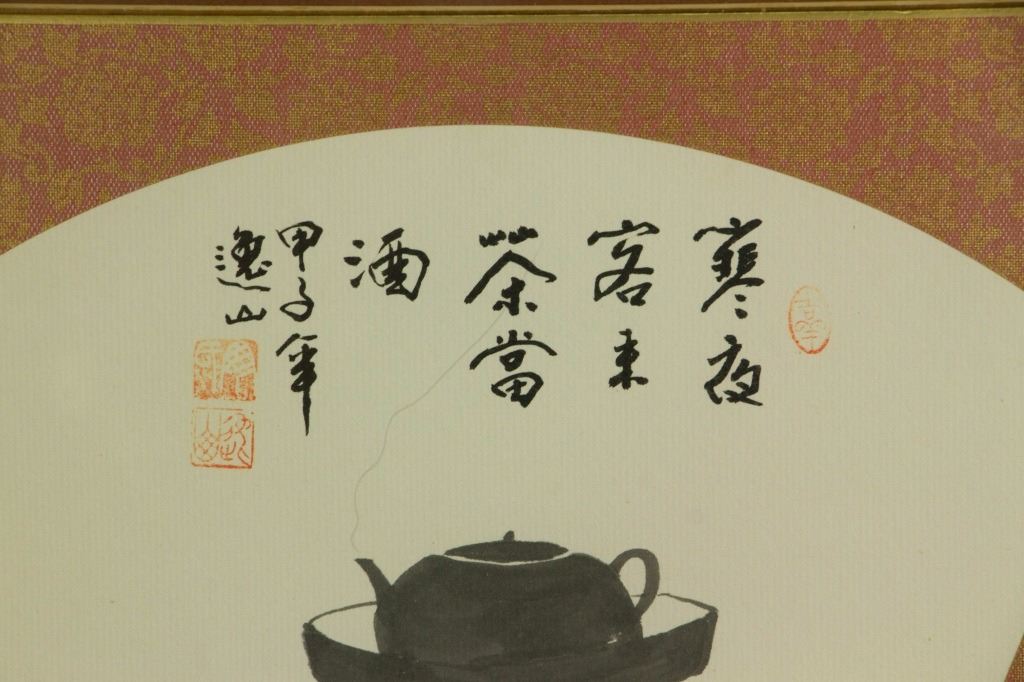 寒夜
客来
茶當
酒
甲子年
逸山